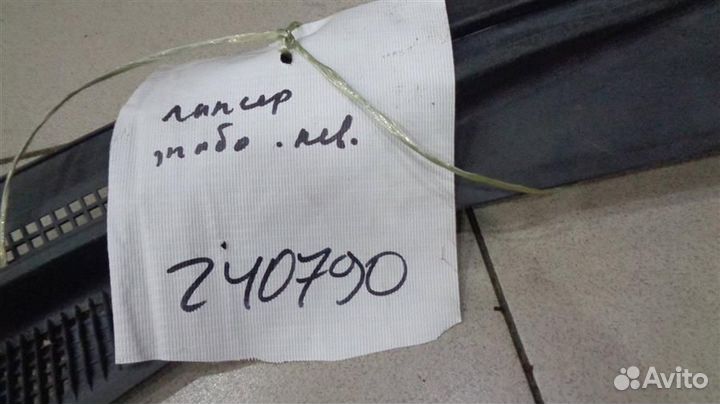 лансер
жабо . лев.
240790
Avito